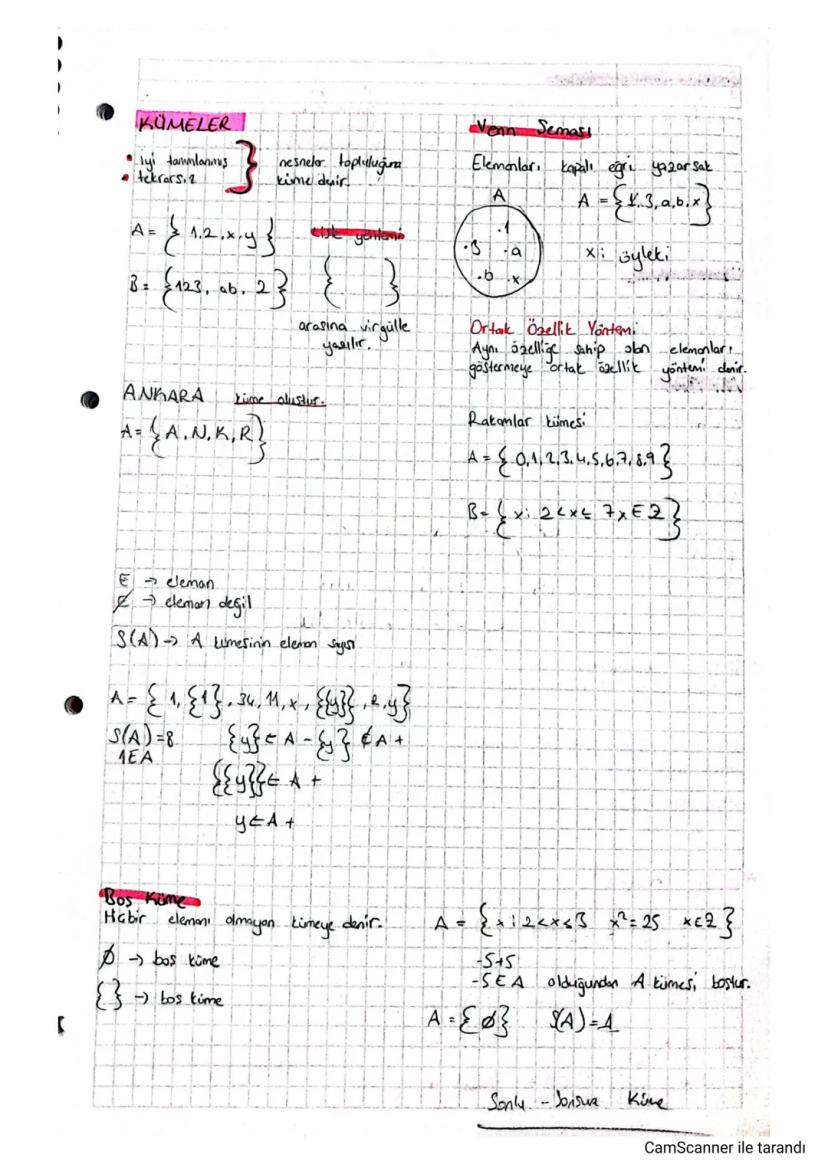 KÜMELER
• iyi tanımlanmış
• tekrarsız
} nesneler topluluğuna
küme denir.
A = { 1,2,x,y }
Liste yöntemi
B = {123, ab, 2}
{ }
arasına virgülle
yazılır.
ANKARA küme oluştur.
A = {A,N,K,R}
∈ → eleman
∉ → eleman değil
S(A) → A kümesinin eleman sayısı
A = { 1, {1}, 34, 11, x, {{y}}, 2, y}
S(A)=8 {y} ∈ A - {y} ∉ A +
1∈A
{{y}} ∈ A +
y ∈ A +
Boş Küme
Hiçbir elemanı olmayan kümeye denir.
∅ → boş küme
{ } → boş küme
Venn Şeması
Elemanları kapalı eğri yazarsak
A
A = {1,3,a,b,x}
.1
.3 .a
.b .x
x: öyleki
Ortak Özellik Yöntemi
Aynı özelliğe sahip olan elemanları
göstermeye ortak özellik yöntemi denir.
Rakamlar kümesi
A = {0,1,2,3,4,5,6,7,8,9}
B = {x: 2<x≤ 7 x∈Z}
A = {x: 2<x≤3 x²=25 x∈Z}
-5+5
-5∈A olduğundan A kümesi boştur.
A = {∅} S(A)=1
Sonlu - Sonsuz Küme
CamScanner ile tarandı